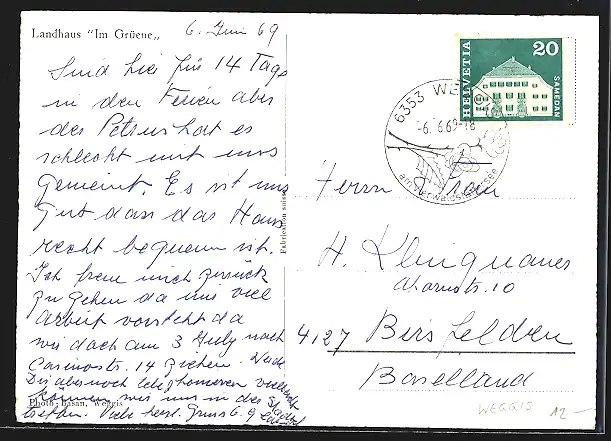 Landhaus "Im Grüene„
6. Juni 69
Sind hier für 14 Tage
in den Ferien aber
der Petrus hat es
schlecht mit uns
gemeint. Es ist nur
gut dass das Haus
recht bequem ist.
Ich freue mich zurück
zu gehen da mir viel
arbeit vorsteht da
wir doch am 3 July nach
Casinostr. 14 ziehen. Werde
Dir aber noch telephonieren vielleicht
können wir uns in der Stadt
treffen. Viele herzl. Grüsse
Photo: Lasan, Weggis
Fabrication suisse
HELVETIA
20
SAMEDAN
6353 WEGGIS
-6. 6.69-18
am Vierwaldstättersee
Herrn u. Frau
H. Klingnauer
Ahornstr. 10
4127 Birsfelden
Baselland
WEGGIS 12-